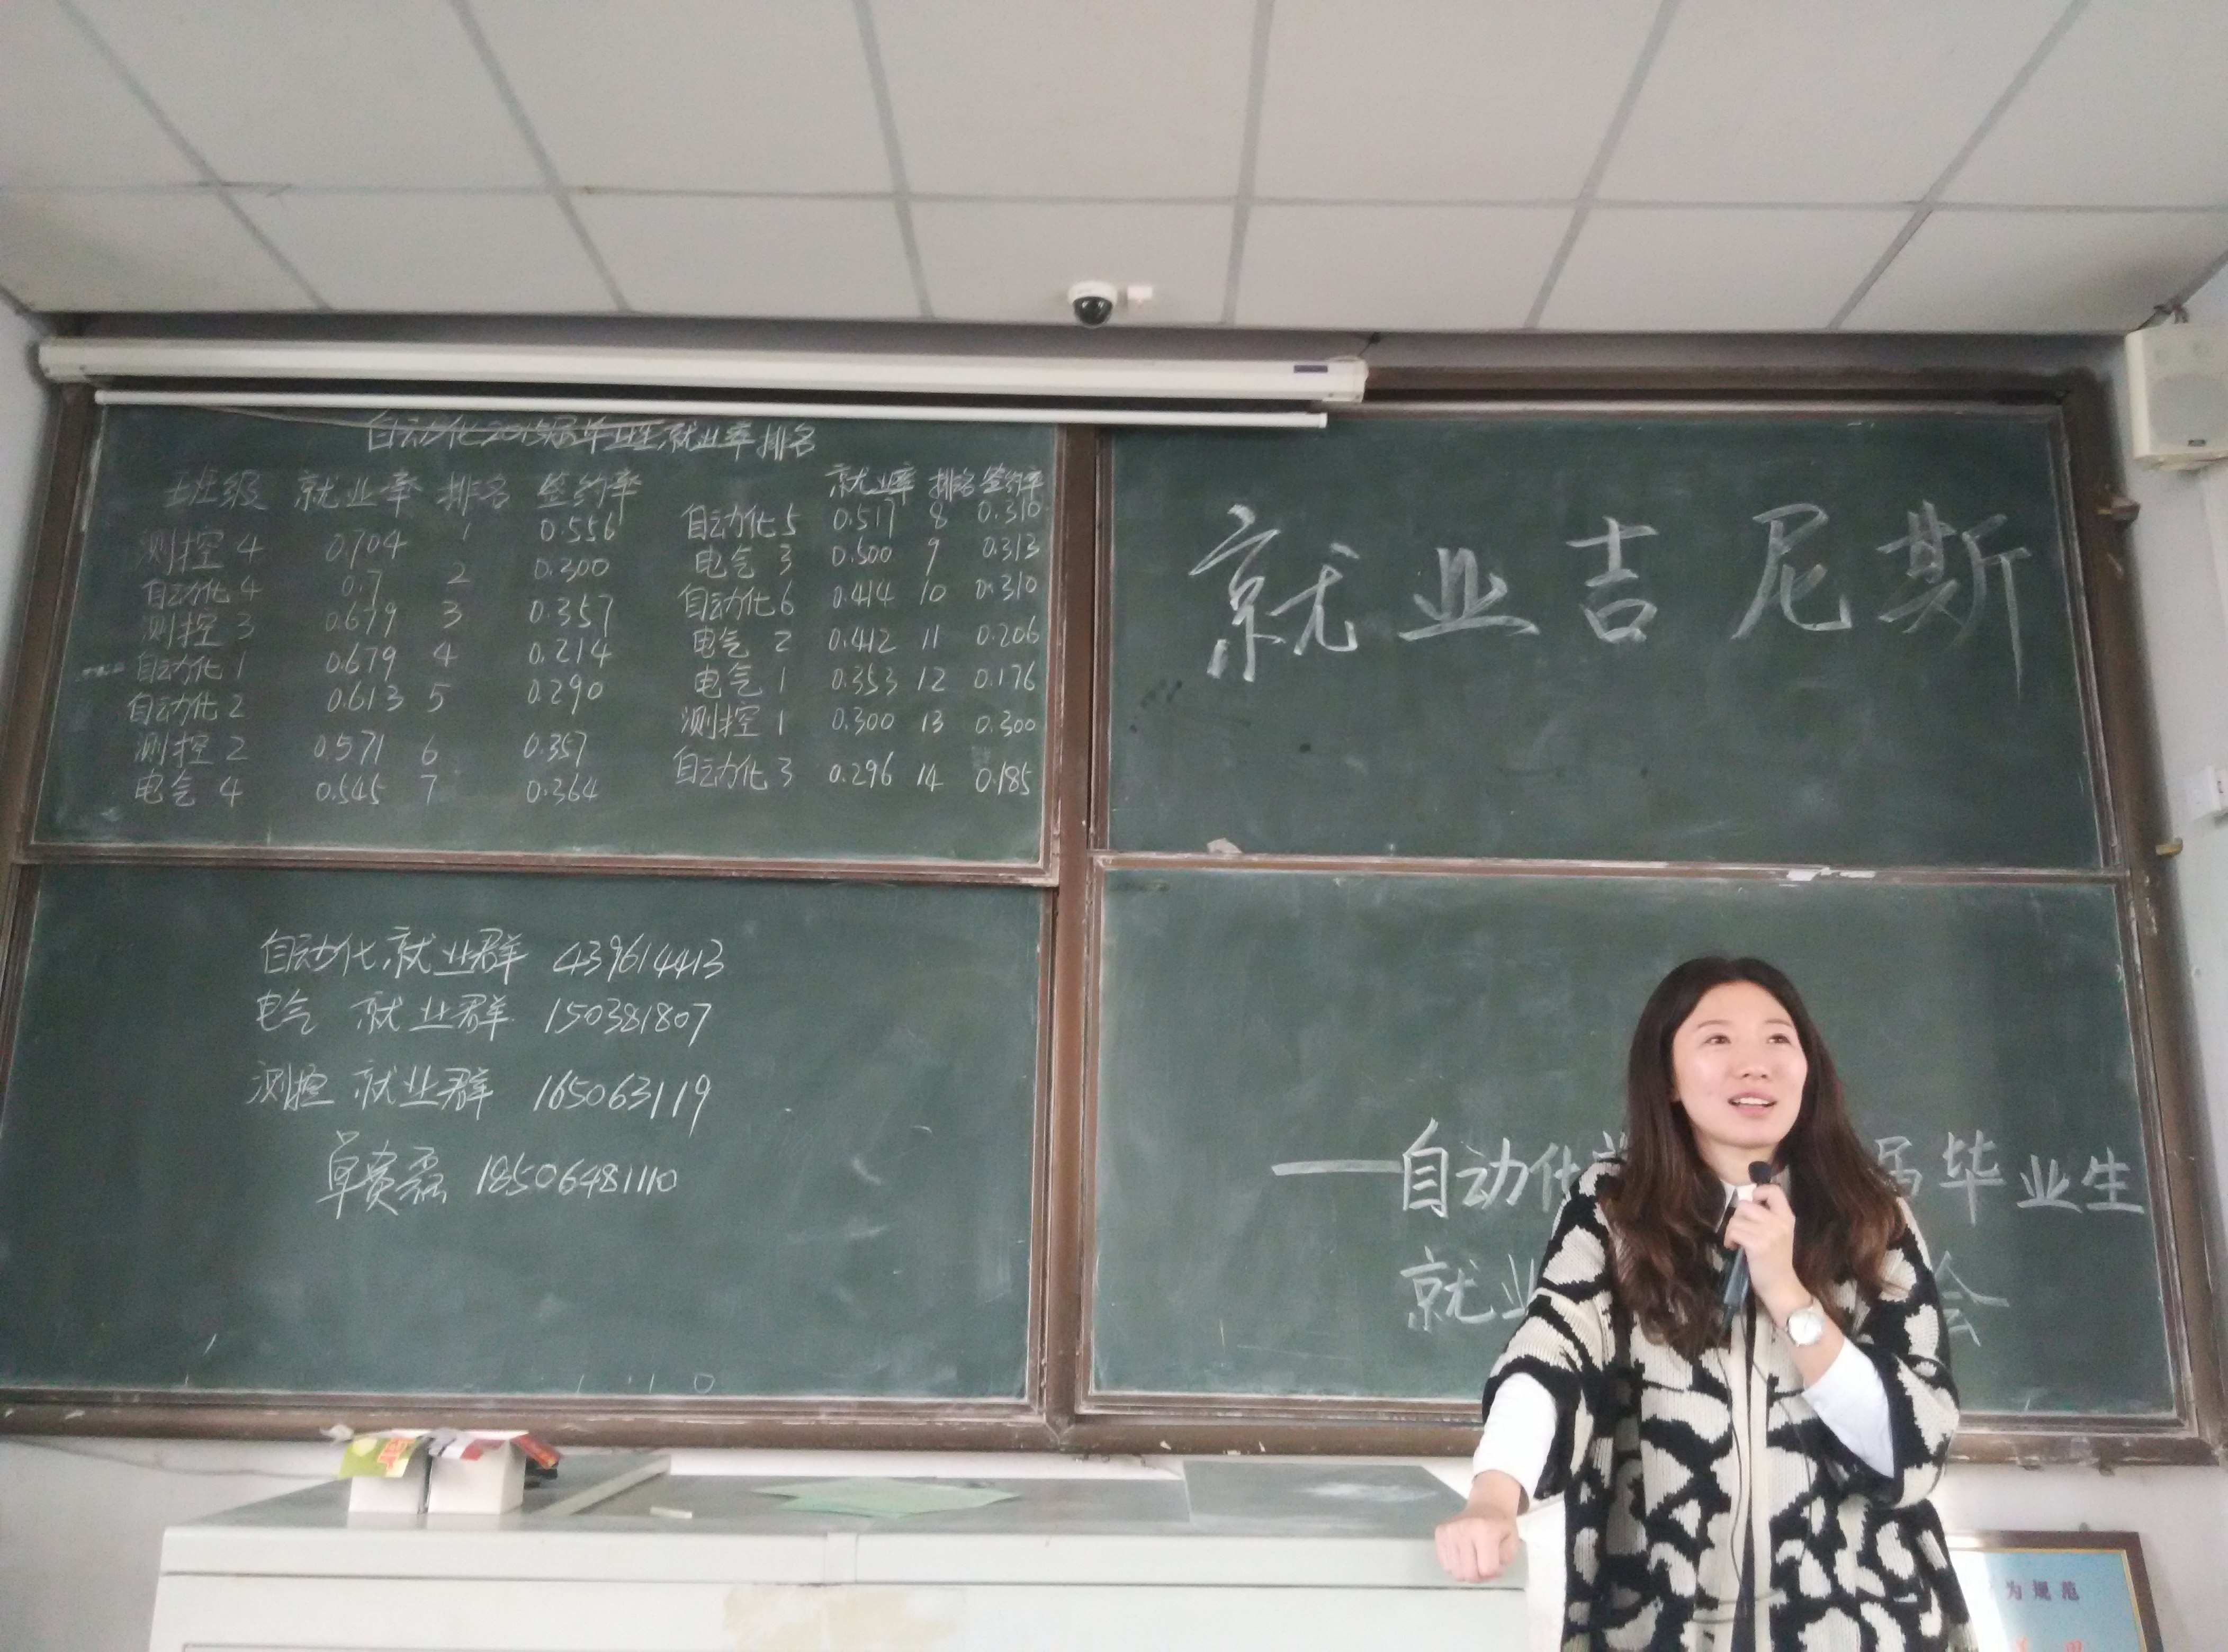 自动化2015届毕业生就业率排名
班级 就业率 排名 签约率
测控4 0.704 1 0.556
自动化4 0.7 2 0.300
测控3 0.679 3 0.357
自动化1 0.679 4 0.214
自动化2 0.613 5 0.290
测控2 0.571 6 0.357
电气4 0.545 7 0.364
就业率 排名 签约率
自动化5 0.517 8 0.310
电气3 0.500 9 0.313
自动化6 0.414 10 0.310
电气2 0.412 11 0.206
电气1 0.353 12 0.176
测控1 0.300 13 0.300
自动化3 0.296 14 0.185
就业吉尼斯
自动化就业群 439614413
电气 就业群 150381807
测控 就业群 165063119
单费磊 18506481110
——自动化 届毕业生
就业 会
为规范